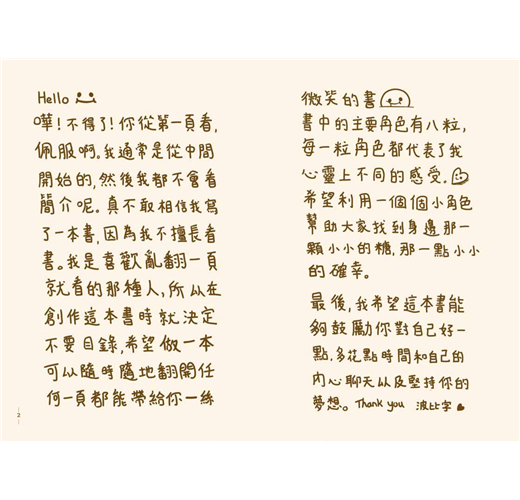 Hello
嘩！不得了！你從第一頁看，
佩服啊。我通常是從中間
開始的，然後我都不會看
簡介呢。真不敢相信我寫
了一本書，因為我不擅長看
書。我是喜歡亂翻一頁
就看的那種人，所以在
創作這本書時就決定
不要目錄，希望做一本
可以隨時隨地翻開任
何一頁都能帶給你一絲
2
微笑的書
書中的主要角色有八粒，
每一粒角色都代表了我
心靈上不同的感受。
希望利用一個個小角色
幫助大家找到身邊那一
顆小小的糖，那一點小小
的確幸。
最後，我希望這本書能
夠鼓勵你對自己好一
點，多花點時間和自己的
內心聊天以及堅持你的
夢想。Thank you 波比字